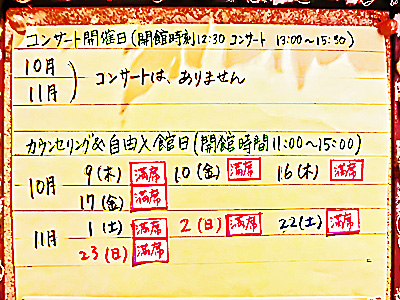 コンサート開催日(開館時刻12:30 コンサート 13:00〜15:30)
10月
11月 ) コンサートは、ありません
カウンセリング&自由入館日(開館時間11:00〜15:00)
10月 9(木) 満席 10(金) 満席 16(木) 満席
17(金) 満席
11月 1(土) 満席 2(日) 満席 22(土) 満席
23(日) 満席